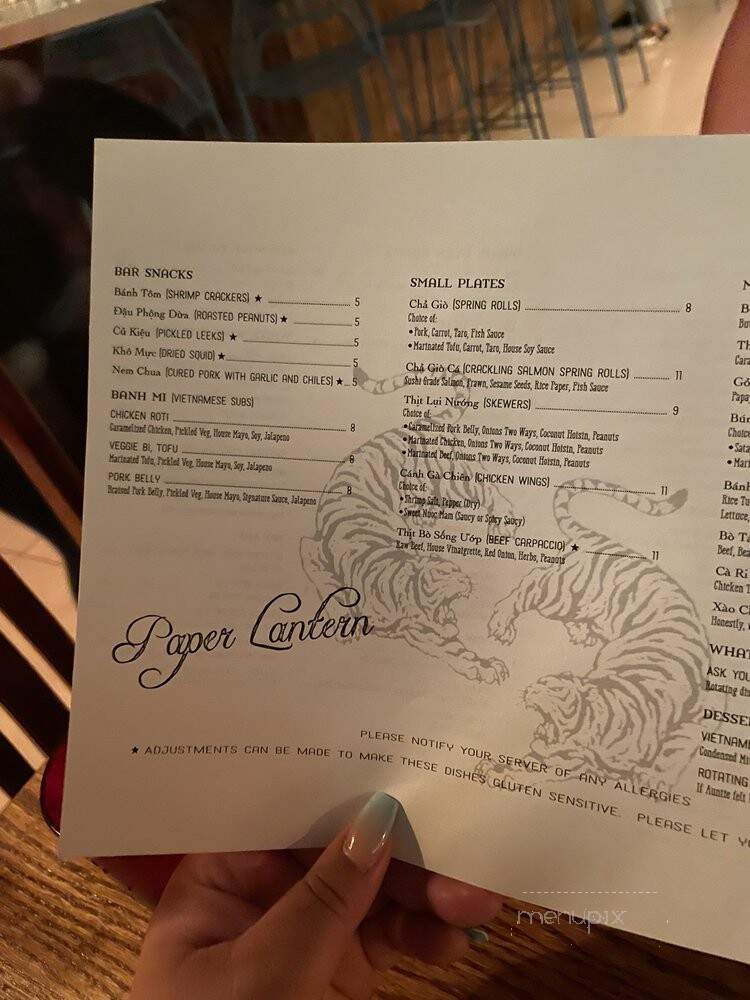 BAR SNACKS
Bánh Tôm (SHRIMP CRACKERS) ★ 5
Đậu Phộng Dừa (ROASTED PEANUTS) ★ 5
Củ Kiệu (PICKLED LEEKS) ★ 5
Khô Mực (DRIED SQUID) ★ 5
Nem Chua (CURED PORK WITH GARLIC AND CHILES) ★ 5
BANH MI (VIETNAMESE SUBS)
CHICKEN ROTI 8
Caramelized Chicken, Pickled Veg, House Mayo, Soy, Jalapeno
VEGGIE BI, TOFU 8
Marinated Tofu, Pickled Veg, House Mayo, Soy, Jalapeno
PORK BELLY 8
Braised Pork Belly, Pickled Veg, House Mayo, Signature Sauce, Jalapeno
SMALL PLATES
Chả Giò (SPRING ROLLS) 8
Choice of:
• Pork, Carrot, Taro, Fish Sauce
• Marinated Tofu, Carrot, Taro, House Soy Sauce
Chả Giò Cá (CRACKLING SALMON SPRING ROLLS) 11
Sushi Grade Salmon, Prawn, Sesame Seeds, Rice Paper, Fish Sauce
Thịt Lụi Nướng (SKEWERS) 9
Choice of:
• Caramelized Pork Belly, Onions Two Ways, Coconut Hoisin, Peanuts
• Marinated Chicken, Onions Two Ways, Coconut Hoisin, Peanuts
• Marinated Beef, Onions Two Ways, Coconut Hoisin, Peanuts
Cánh Gà Chiên (CHICKEN WINGS) 11
Choice of:
• Shrimp Salt, Pepper (Dry)
• Sweet Nuoc Mam (Saucy or Spicy Saucy)
Thịt Bò Sống Ướp (BEEF CARPACCIO) ★ 11
Raw Beef, House Vinaigrette, Red Onion, Herbs, Peanuts
Rice
Lettuce,
Bò
Beef,
Cà Ri
Chicken
Xào
Honestly,
WHAT
ASK YOU
Rotating
DESSE
VIETNAM
Condensed
ROTATING
If Auntie felt
Paper Lantern
PLEASE NOTIFY YOUR SERVER OF ANY ALLERGIES
★ ADJUSTMENTS CAN BE MADE TO MAKE THESE DISHES GLUTEN SENSITIVE. PLEASE LET
menupix